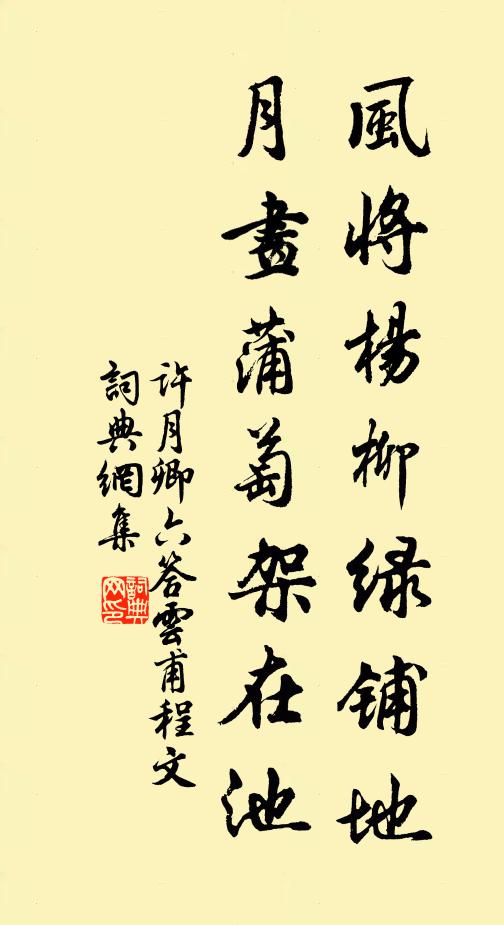 風將楊柳綠鋪地
月畫蒲萄架在池
許月卿六答雲甫程文
詞典網集
詞典網印